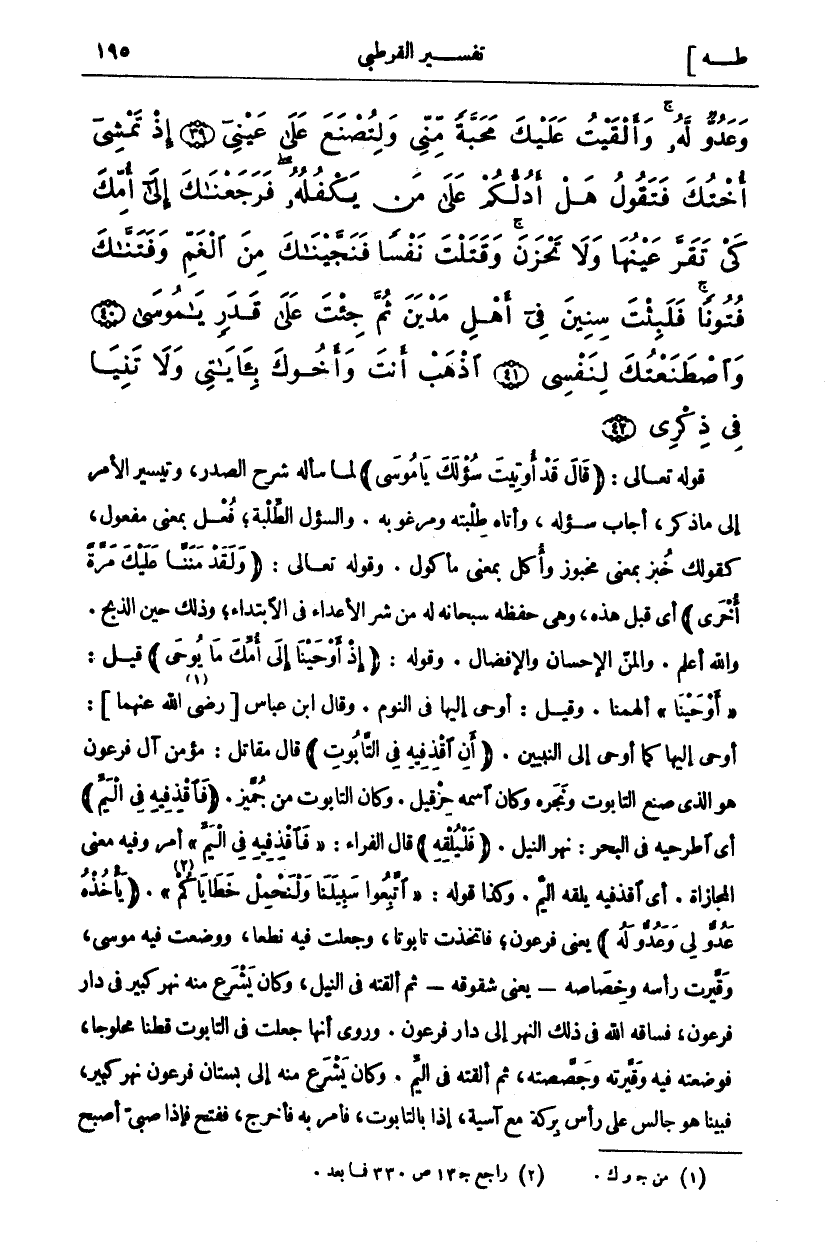 طـــه ] تفســـير القرطبى ١٩٥
وَعَدُوٌّ لَّهُۥ ۚ وَأَلْقَيْتُ عَلَيْكَ مَحَبَّةً مِّنِّى وَلِتُصْنَعَ عَلَىٰ عَيْنِىٓ ﴿٣٩﴾ إِذْ تَمْشِىٓ
أُخْتُكَ فَتَقُولُ هَلْ أَدُلُّكُمْ عَلَىٰ مَن يَكْفُلُهُۥ ۖ فَرَجَعْنَٰكَ إِلَىٰٓ أُمِّكَ
كَىْ تَقَرَّ عَيْنُهَا وَلَا تَحْزَنَ ۚ وَقَتَلْتَ نَفْسًا فَنَجَّيْنَٰكَ مِنَ ٱلْغَمِّ وَفَتَنَّٰكَ
فُتُونًا ۚ فَلَبِثْتَ سِنِينَ فِىٓ أَهْلِ مَدْيَنَ ثُمَّ جِئْتَ عَلَىٰ قَدَرٍ يَٰمُوسَىٰ ﴿٤٠﴾
وَٱصْطَنَعْتُكَ لِنَفْسِى ﴿٤١﴾ ٱذْهَبْ أَنتَ وَأَخُوكَ بِـَٔايَٰتِى وَلَا تَنِيَا
فِى ذِكْرِى ﴿٤٢﴾
قوله تعالى : (قَالَ قَدْ أُوتِيتَ سُؤْلَكَ يَامُوسَى) لما سأله شرح الصدر، وتيسير الأمر
إلى ماذكر، أجاب سؤله ، وأتاه طِلْبته ومرغوبه . والسؤل الطَّلْبة؛ فُعْل بمعنى مفعول،
كقولك خُبز بمعنى مخبوز وأُكل بمعنى مأكول . وقوله تعالى : (وَلَقَدْ مَنَنَّا عَلَيْكَ مَرَّةً
أُخْرَى) أى قبل هذه، وهى حفظه سبحانه له من شر الأعداء فى الآبتداء؛ وذلك حين الذبح .
والله أعلم . والمنّ الإحسان والإفضال . وقوله : (إِذْ أَوْحَيْنَا إِلَى أُمِّكَ مَا يُوحَى) قيل :
« أَوْحَيْنَا » ألهمنا . وقيل : أوحى إليها فى النوم . وقال ابن عباس [رضى الله عنهما](١) :
أوحى إليها كما أوحى إلى النبيين . (أَنِ ٱقْذِفِيهِ فِى التَّابُوتِ) قال مقاتل : مؤمن آل فرعون
هو الذى صنع التابوت ونَجَره وكان آسمه حِزْقيل . وكان التابوت من جُمَّيْز . (فَٱقْذِفِيهِ فِى الْيَمِّ)
أى ٱطرحيه فى البحر : نهر النيل . (فَلْيُلْقِهِ) قال الفراء : « فَٱقْذِفِيهِ فِى الْيَمِّ » أمر وفيه معنى
المجازاة . أى ٱقذفيه يلقه اليَمّ . وكذا قوله : « ٱتَّبِعُوا سَبِيلَنَا وَلْنَحْمِلْ خَطَايَاكُمْ »(٢) . (يَأْخُذْهُ
عَدُوٌّ لِى وَعَدُوٌّ لَهُ) يعنى فرعون؛ فاتخذت تابوتا، وجعلت فيه نطعا، ووضعت فيه موسى،
وقَيَّرت رأسه وخِصَاصه — يعنى شقوقه — ثم ألقته فى النيل، وكان يَشْرَع منه نهر كبير فى دار
فرعون، فساقه الله فى ذلك النهر إلى دار فرعون . وروى أنها جعلت فى التابوت قطنا محلوجا،
فوضعته فيه وقَيَّرته وجَصَّصته، ثم ألقته فى اليمّ . وكان يَشْرَع منه إلى بستان فرعون نهر كبير،
فبينا هو جالس على رأس بِركة مع آسية، إذا بالتابوت، فأمر به فأخرج، ففتح فإذا صبىّ أصبح
(١) من جـ و ك . (٢) راجع جـ ١٣ ص ٣٣٠ فما بعد .